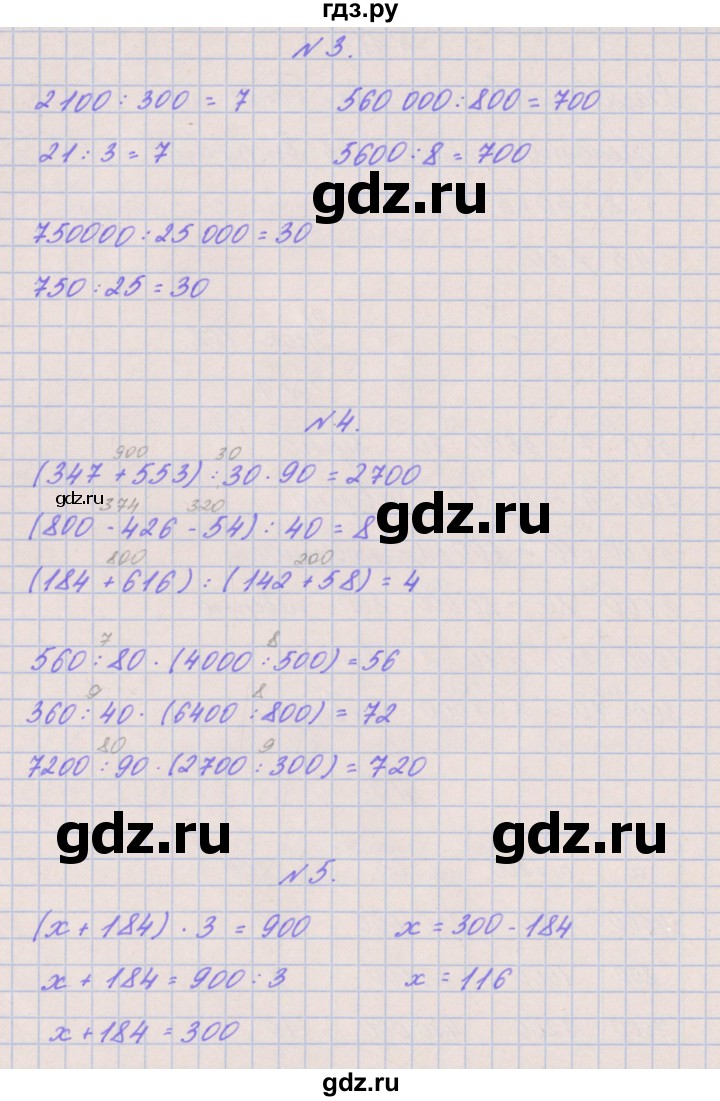 гдз.ру
№3.
2100 : 300 = 7 560 000 : 800 = 700
21 : 3 = 7 5600 : 8 = 700
gdz.ru
750000 : 25 000 = 30
750 : 25 = 30
№4.
900 30
(347 + 553) : 30 · 90 = 2700
gdz.ru 374 320 gdz.ru
(800 - 426 - 54) : 40 = 8
800 200
(184 + 616) : (142 + 58) = 4
7 8
560 : 80 · (4000 : 500) = 56
9 8
360 : 40 · (6400 : 800) = 72
80 9
7200 : 90 · (2700 : 300) = 720
gdz.ru gdz.ru
№5.
(x + 184) · 3 = 900 x = 300 - 184
x + 184 = 900 : 3 x = 116
x + 184 = 300
gdz.ru